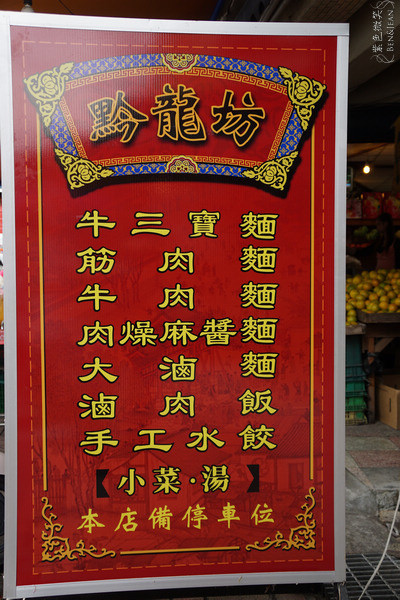 黔龍坊
牛三寶麵
筋肉麵
牛肉麵
肉燥麻醬麵
大滷麵
滷肉飯
手工水餃
【小菜·湯】
本店備停車位
紫色微笑
BEN&JEAN